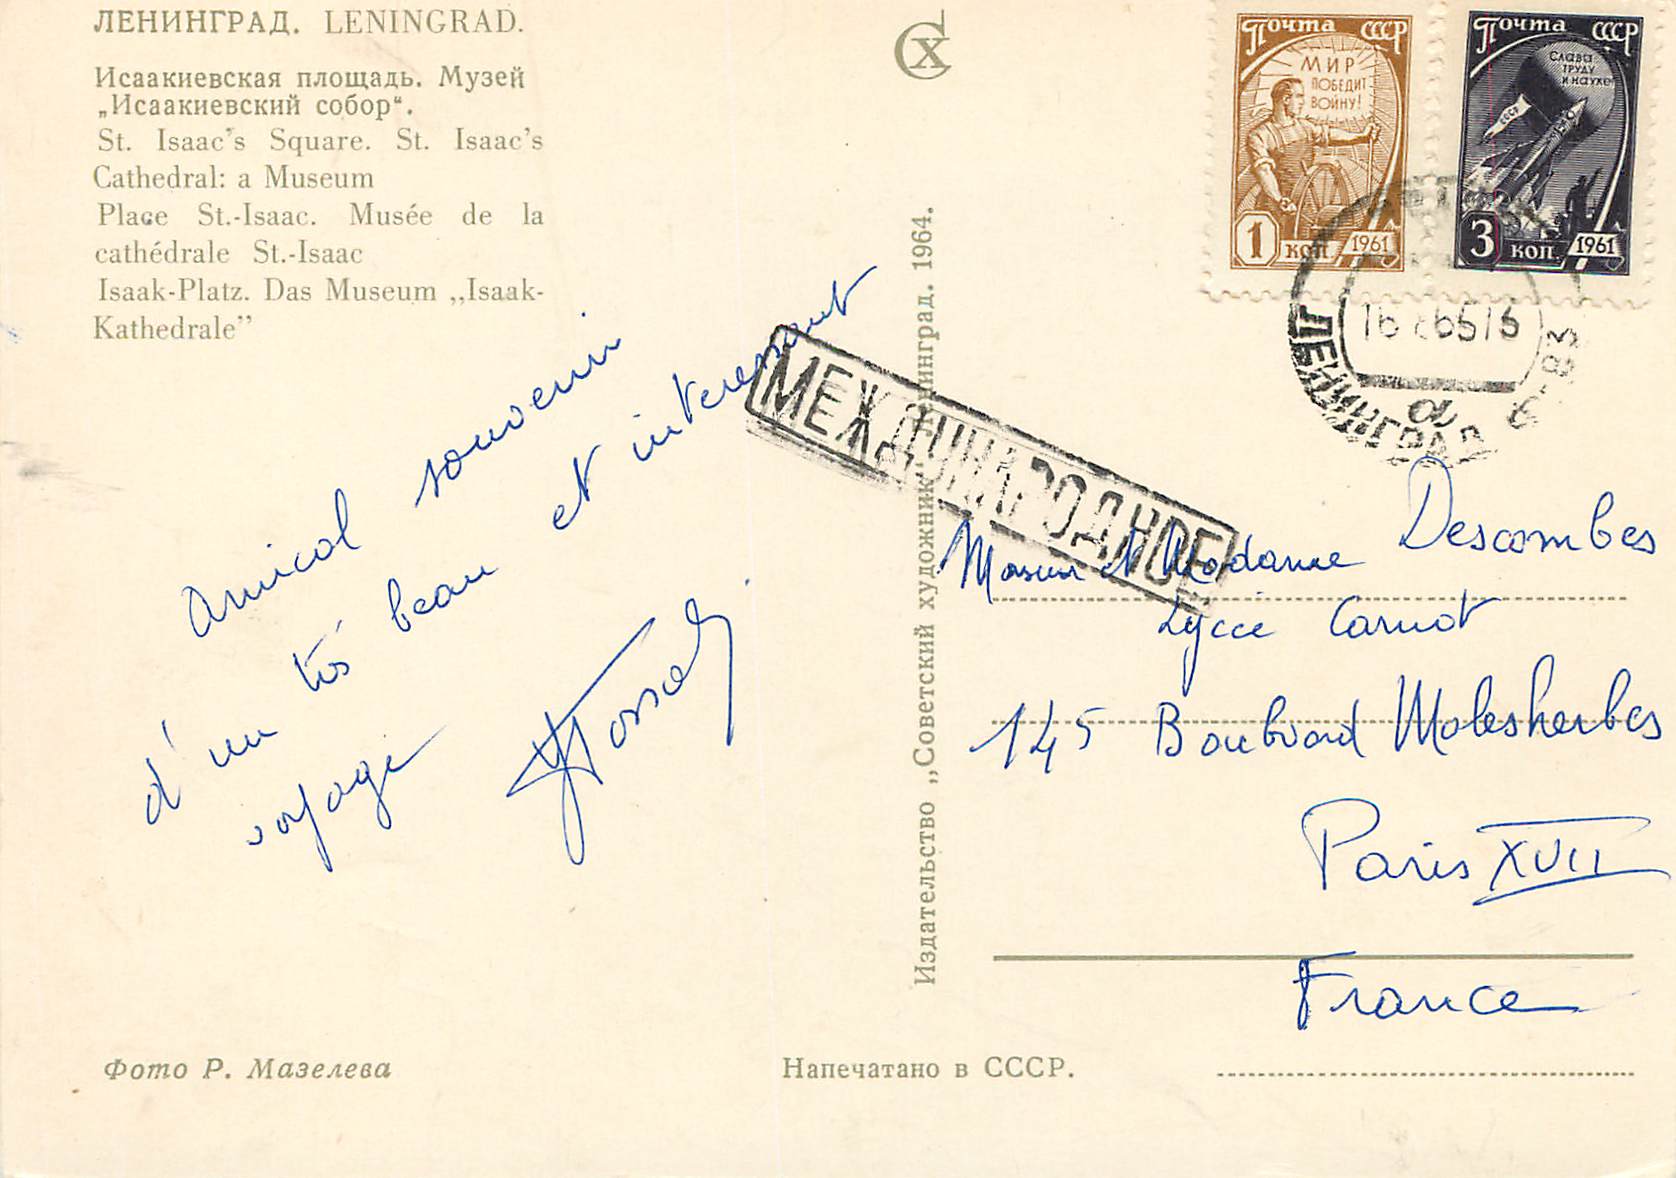 ЛЕНИНГРАД. LENINGRAD.
Исаакиевская площадь. Музей
„Исаакиевский собор“.
St. Isaac's Square. St. Isaac's
Cathedral: a Museum
Place St.-Isaac. Musée de la
cathédrale St.-Isaac
Isaak-Platz. Das Museum „Isaak-
Kathedrale”
Amical souvenir
d'un très beau et interessant
voyage
Фото Р. Мазелева
Издательство „Советский художник“. Ленинград. 1964.
Напечатано в СССР.
МЕЖДУНАРОДНОЕ
Почта СССР
МИР
ПОБЕДИТ
ВОЙНУ!
1 коп. 1961
Почта СССР
Слава
труду
и науке!
СССР
3 коп. 1961
ЛЕНИНГРАД
Monsieur et Madame Descombes
Lycée Carnot
145 Boulevard Malesherbes
Paris XVII
France